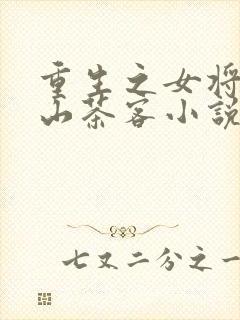 重生之女将
山茶客小说
七又二分之一